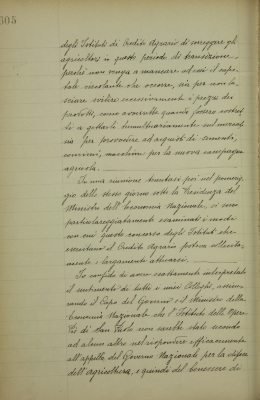 305
degli Istituti di Credito Agrario di sorreggere gli
agricoltori in questo periodo di transizione,
perchè non venga a mancare ad essi il capi-
tale circolante che occorre, sia per non la-
sciare svilire eccessivamente i prezzi dei
prodotti, come avverrebbe quando fossero costret-
ti a gettarli tumultuariamente sul mercato,
sia per provvedere ad acquisti di sementi,
concimi, macchine per la nuova campagna
agricola.
In una riunione tenutasi poi nel pomerig-
gio dello stesso giorno sotto la Presidenza del
Ministro dell'Economia Nazionale, si sono
particolareggiatamente esaminati i modi
con cui questo concorso degli Istituti che
esercitano il Credito Agrario poteva sollecita-
mente e largamente attuarsi.
Io confido di avere esattamente interpretato
il sentimento di tutti i miei Colleghi, assicu-
rando il Capo del Governo e il Ministro della
Economia Nazionale che l'Istituto delle Opere
Pie di San Paolo non sarebbe stato secondo
ad alcun altro nel rispondere efficacemente
all'appello del Governo Nazionale per la difesa
dell'agricoltura, e quindi del benessere di